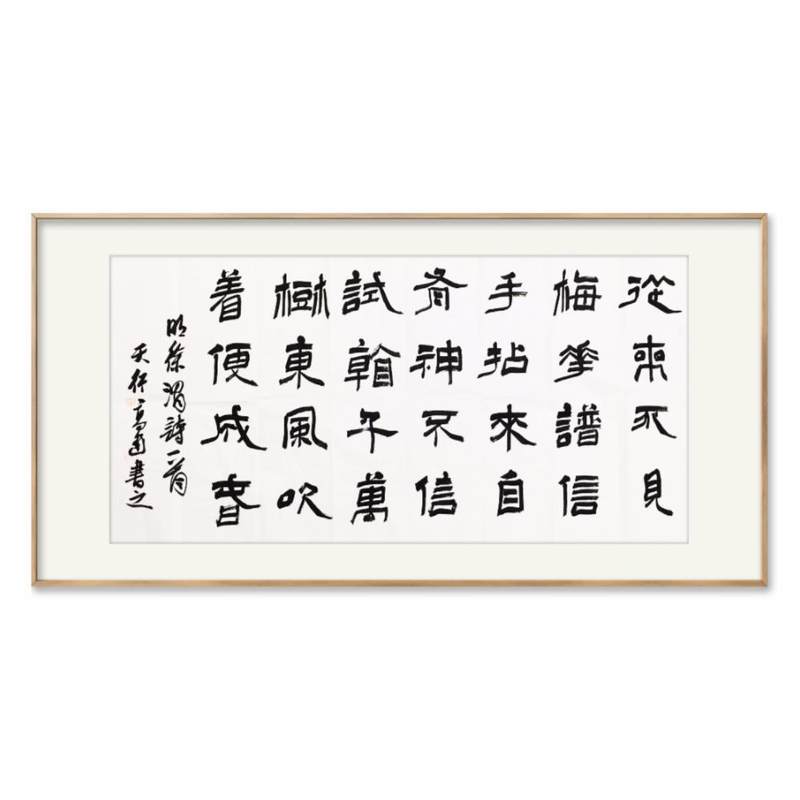 從來不見
梅花譜信
手拈來自
有神不信
試看千萬
樹東風吹
着便成春
明徐渭詩一首
天行書之